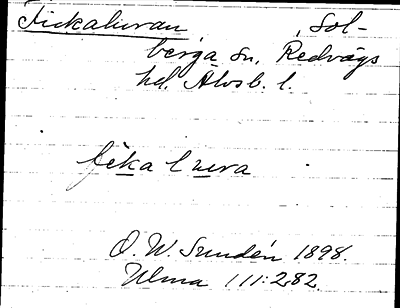 Fickaluran, Sol-
berga sn, Redvägs
hd, Älvsb. l.
fika lura
O. W. Sundén 1898.
Ulma 111:282